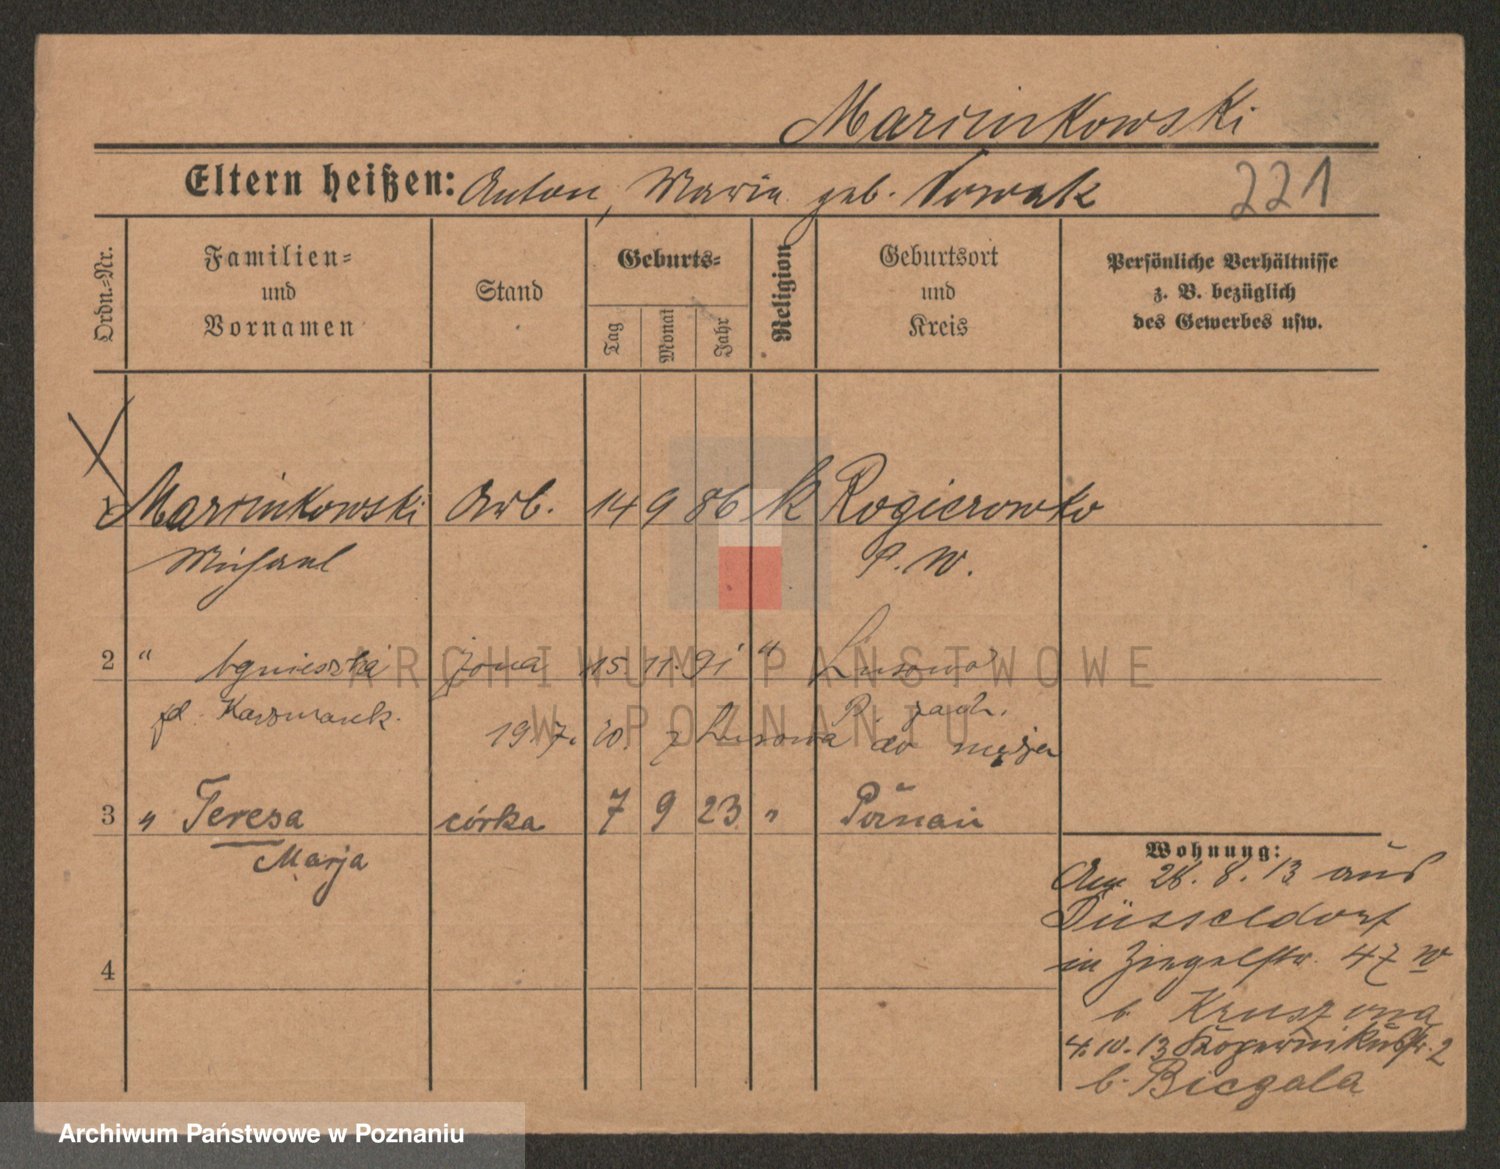 Marcinkowski
Eltern heißen: Anton, Maria geb. Nowak
221
Ordn.-Nr.
Familien- und Vornamen
Stand
Geburts-
Tag
Monat
Jahr
Religion
Geburtsort und Kreis
Persönliche Verhältnisse z. B. bezüglich des Gewerbes usw.
1 Marcinkowski Arb. 14 9 86 k Rogierowko
Michael P. W.
2 " Agnieszka żona 15 11. 91 " Lusowo
Kaczmarek. P. zach.
19. 7. 20. z Lusowa do męża
3 " Teresa córka 7 9 23 " Poznań
Marja
4
Wohnung:
Am 28. 8. 13 aus
Düsseldorf
in Ziegelstr. 47 W
b.
4. 10. 13 Kopernikusstr. 2
b. Biegala
ARCHIWUM PAŃSTWOWE
W POZNANIU
Archiwum Państwowe w Poznaniu